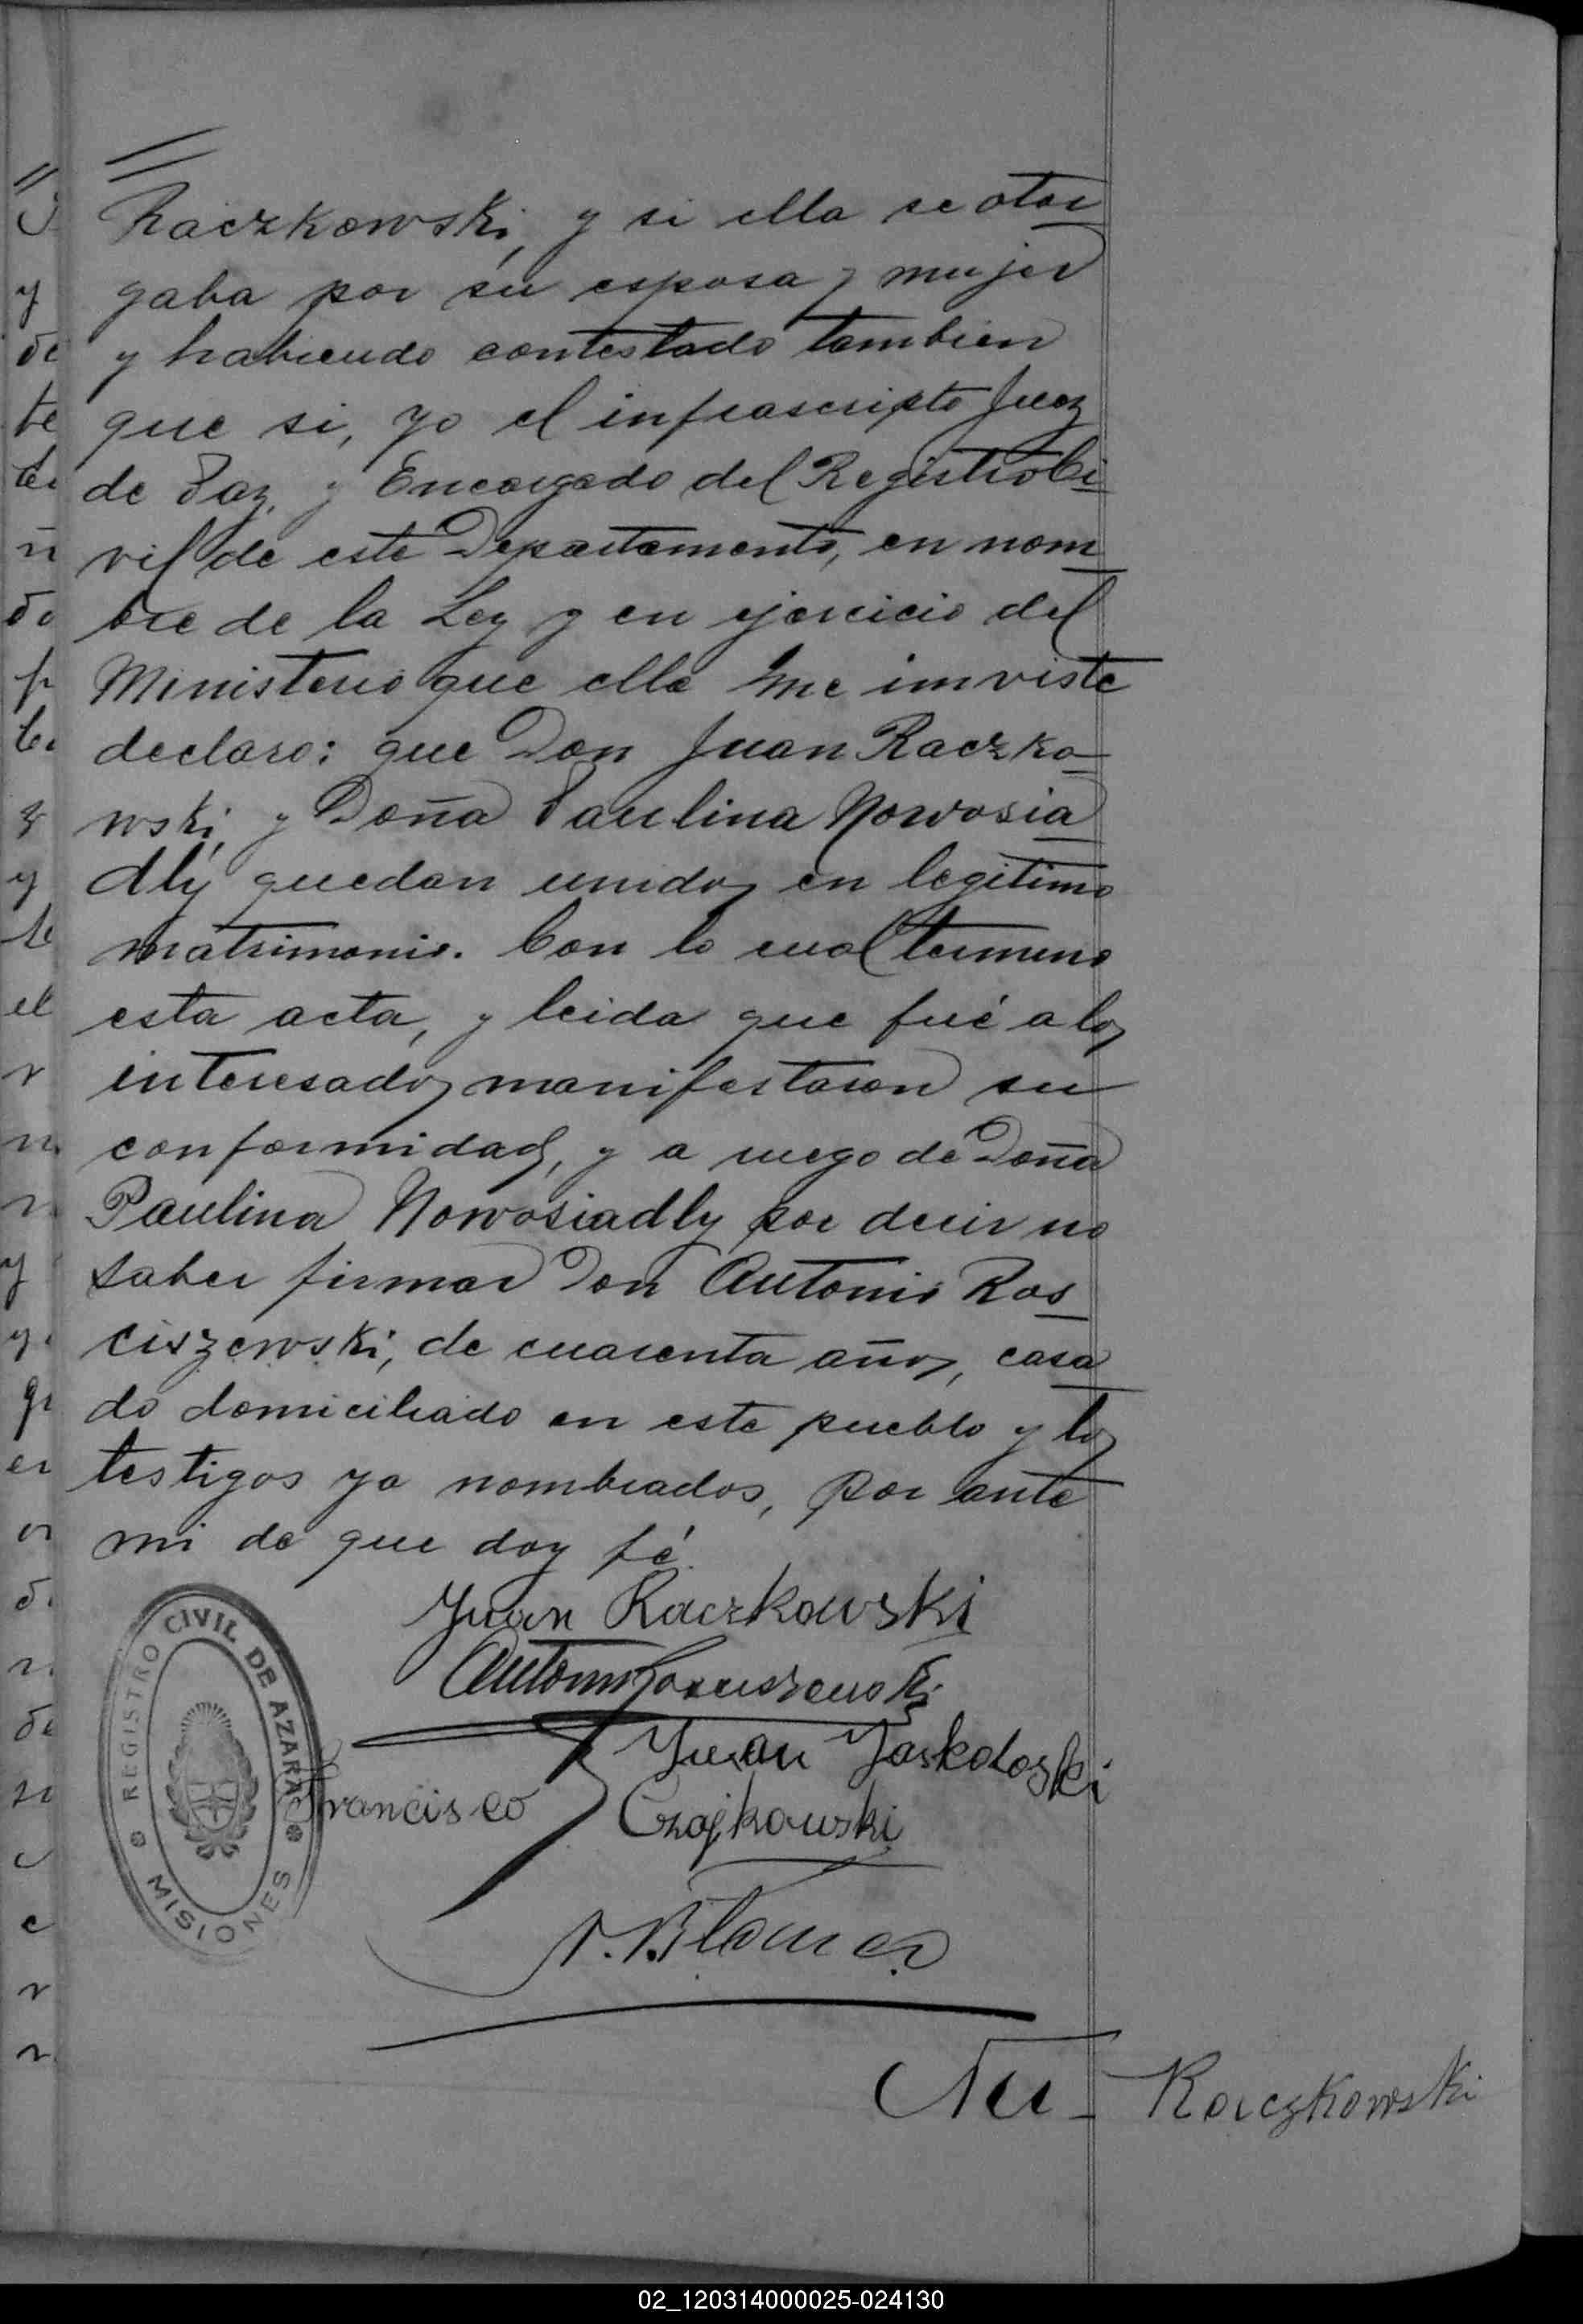 Raczkowski, y si ella se otor
gaba por su esposa y mujer
y habiendo contestado tambien
que si, yo el infrascripto Juez
de Paz, y Encargado del Registro Ci
vil de este Departamento, en nom
bre de la Ley y en ejercicio del
Ministerio que ella me imviste
declaro: que Don Juan Raczko
wski, y Doña Paulina Nowosia
dly quedan unidos en legitimo
matrimonio. Con lo cual termino
esta acta, y leida que fué a los
interesados manifestaron su
conformidad, y a ruego de Doña
Paulina Nowosiadly por decir no
saber firmar Don Antonio Ros
ciszewski, de cuarenta años, casa
do domiciliado en este pueblo y los
testigos ya nombrados, por ante
mi de que doy fé.
Juan Raczkowski
Antonio Rosciszewski
Juan Jaskoloski
Francisco Czajkowski
REGISTRO CIVIL DE AZARA
MISIONES
Nu- Raczkowski
02_120314000025-024130